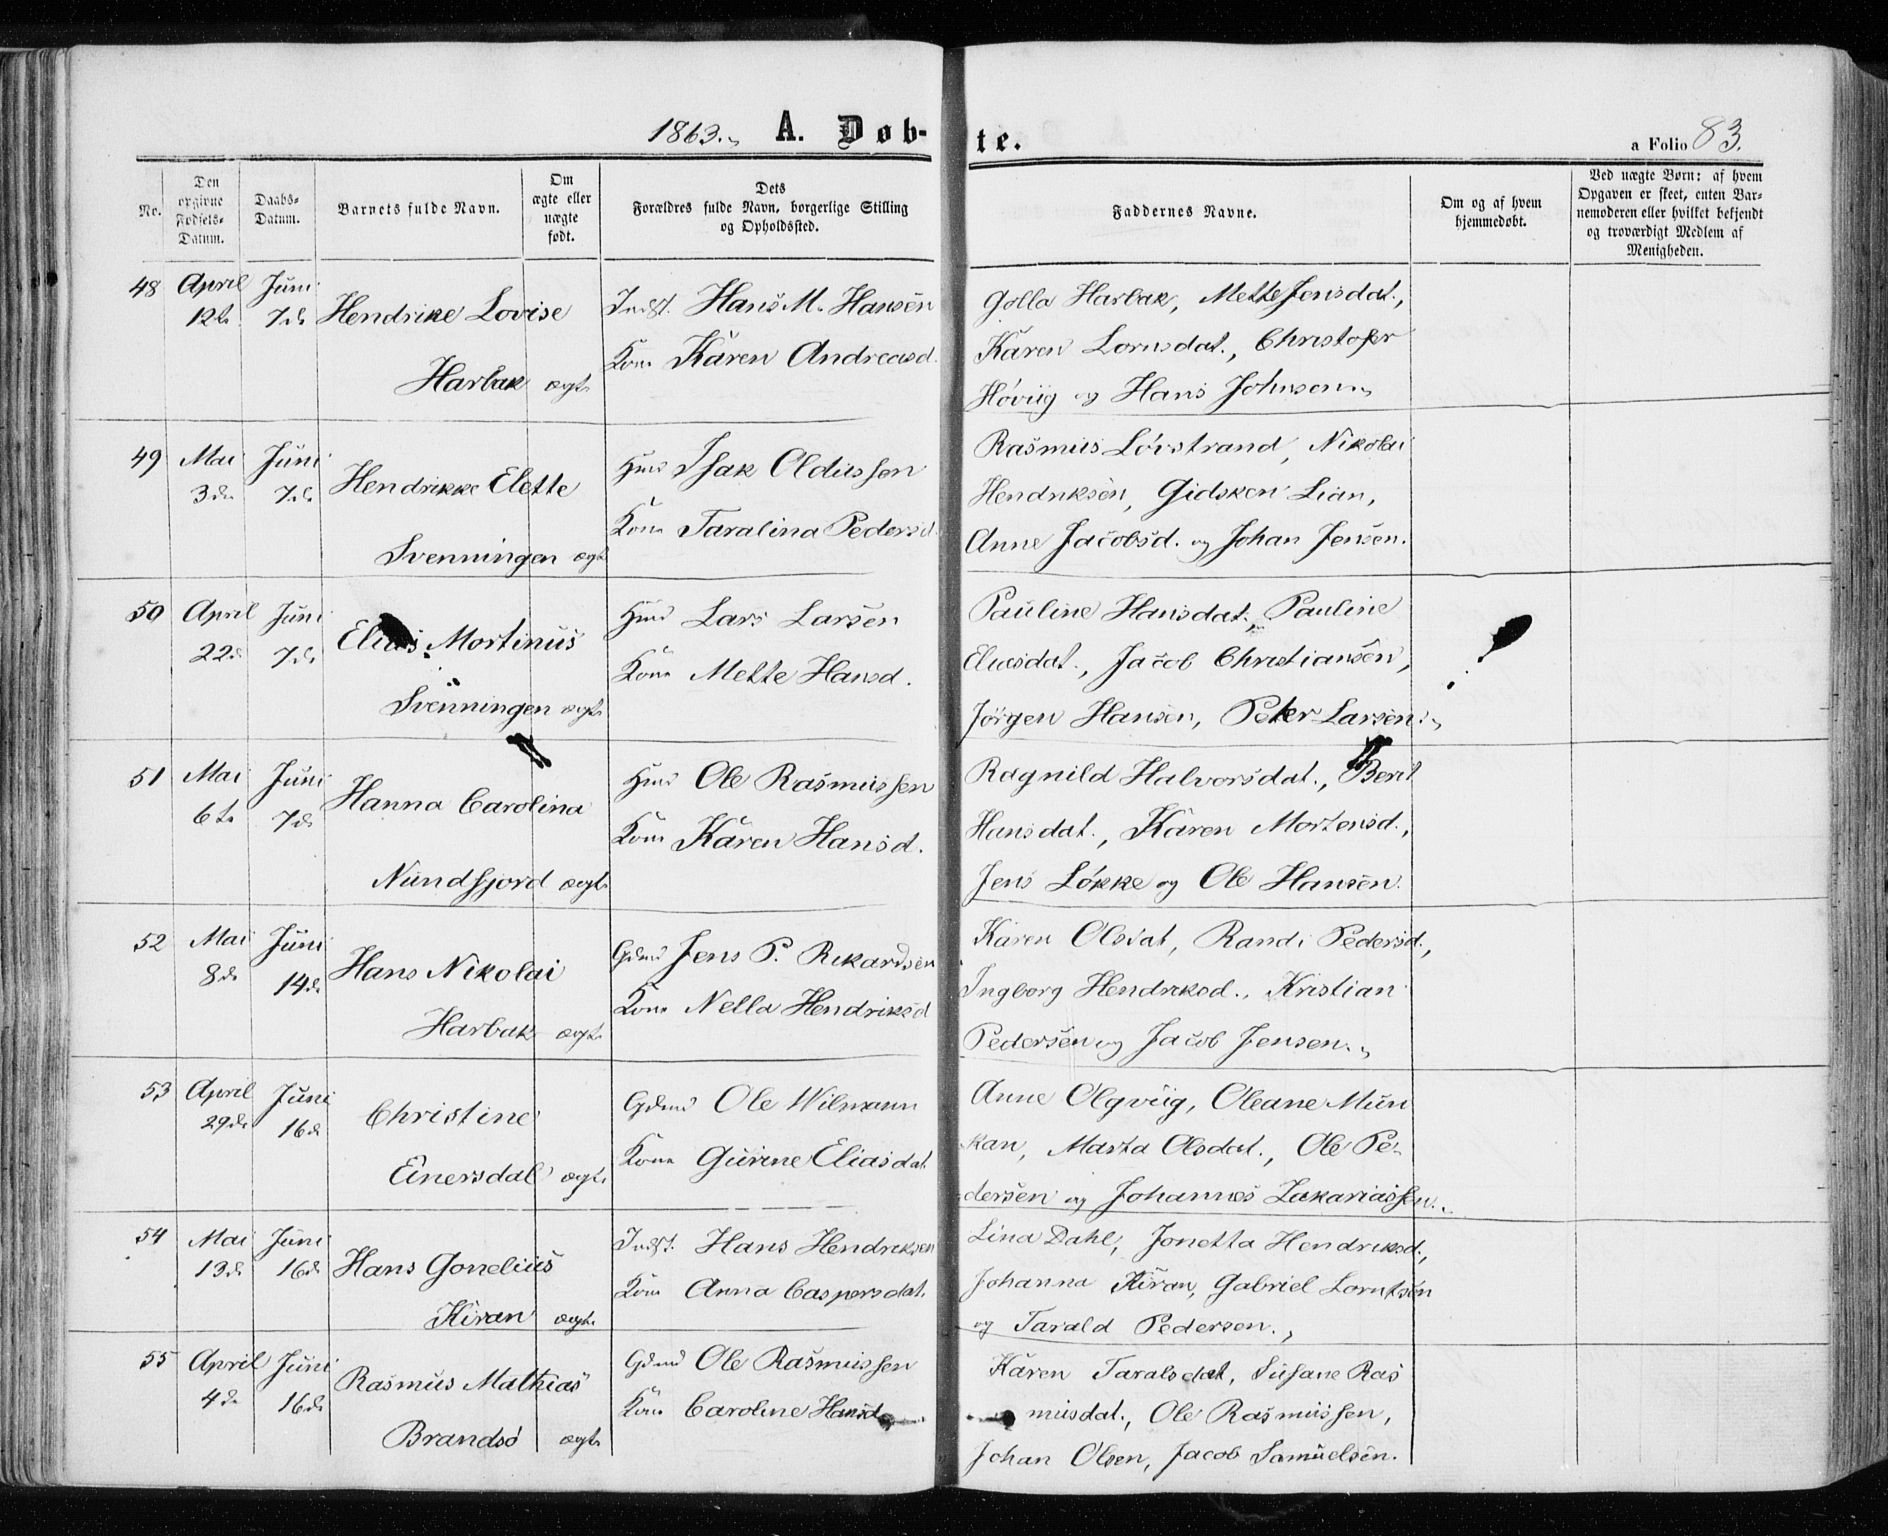 1863. A. Døb-
te. a Folio 83.
No.
Den
opgivne
Fødsels-
Datum.
Daabs-
Datum.
Barnets fulde Navn.
Om
ægte eller
uægte
født.
Dets
Forældres fulde Navn, borgerlige Stilling
og Opholdssted.
Faddernes Navne.
Om og af hvem
hjemmedøbt.
Ved uægte Børn: af hvem
Opgaven er skeet, enten Bar-
nemoderen eller hvilket bekjendt
og troværdigt Medlem af
Menigheden.
48 April Juni
12te 7de Hendrike Lovise
Harbak ægte
Indst. Hans M. Hansen
Kone Karen Andreasd.
Golla Harbak, Mette Jensdat.,
Karen Lornsdat., Christofer
Høviig og Hans Johnsen.
49 Mai Juni
3de 7de Hendrikke Elette
Svenningen ægte
Hmd Isak Oldussen
Kone Taralina Pedersd.
Rasmus Lövstrand, Nikolai
Hendriksen, Gidsken Lian,
Anne Jacobsd. og Johan Jensen.
50 April Juni
22de 7de Elias Mortinus
Svenningen ægte
Hmd Lars Larsen
Kone Mette Hansd.
Pauline Hansdat., Pauline
Eliasdat., Jacob Christiansen,
Jörgen Hansen, Peter Larsen.
51 Mai Juni
6te 7de Hanna Carolina
Nundfjord ægte
Hmd Ole Rasmussen
Kone Karen Hansd.
Ragnild Halvorsdat., Berit
Hansdat., Karen Mortensd.,
Jens Løkke og Ole Hansen.
52 Mai Juni
8de 14de Hans Nikolai
Harbak ægte
Gdmd Jens P. Rikardsen
Kone Nella Hendriksd
Karen Olsdat, Randi Pedersd.,
Ingborg Hendriksd., Kristian
Pedersen og Jacob Jensen.
53 April Juni
29de 16de Christine
Einersdal ægte
Gdmd Ole Wilmann
Kone Gurine Eliasdat.
Anne Olgviig, Oleane Mun
kan, Marta Olsdat., Ole Pe-
dersen og Johannes Zakariassen.
54 Mai Juni
13de 16de Hans Gonelius
Kiran ægte
Indst. Hans Hendriksen
Kone Anna Caspersdat.
Lina Dahl, Jonetta Hendriksd.,
Johanna Kiran, Gabriel Lorntsen
og Tarald Pedersen.,
55 April Juni
4de 16de Rasmus Mathias
Brandsø ægte
Gdmd Ole Rasmussen
Kone Caroline Hansd
Karen Taralsdat, Susane Ras
musdat., Ole Rasmussen,
Johan Olsen, Jacob Samuelsen.